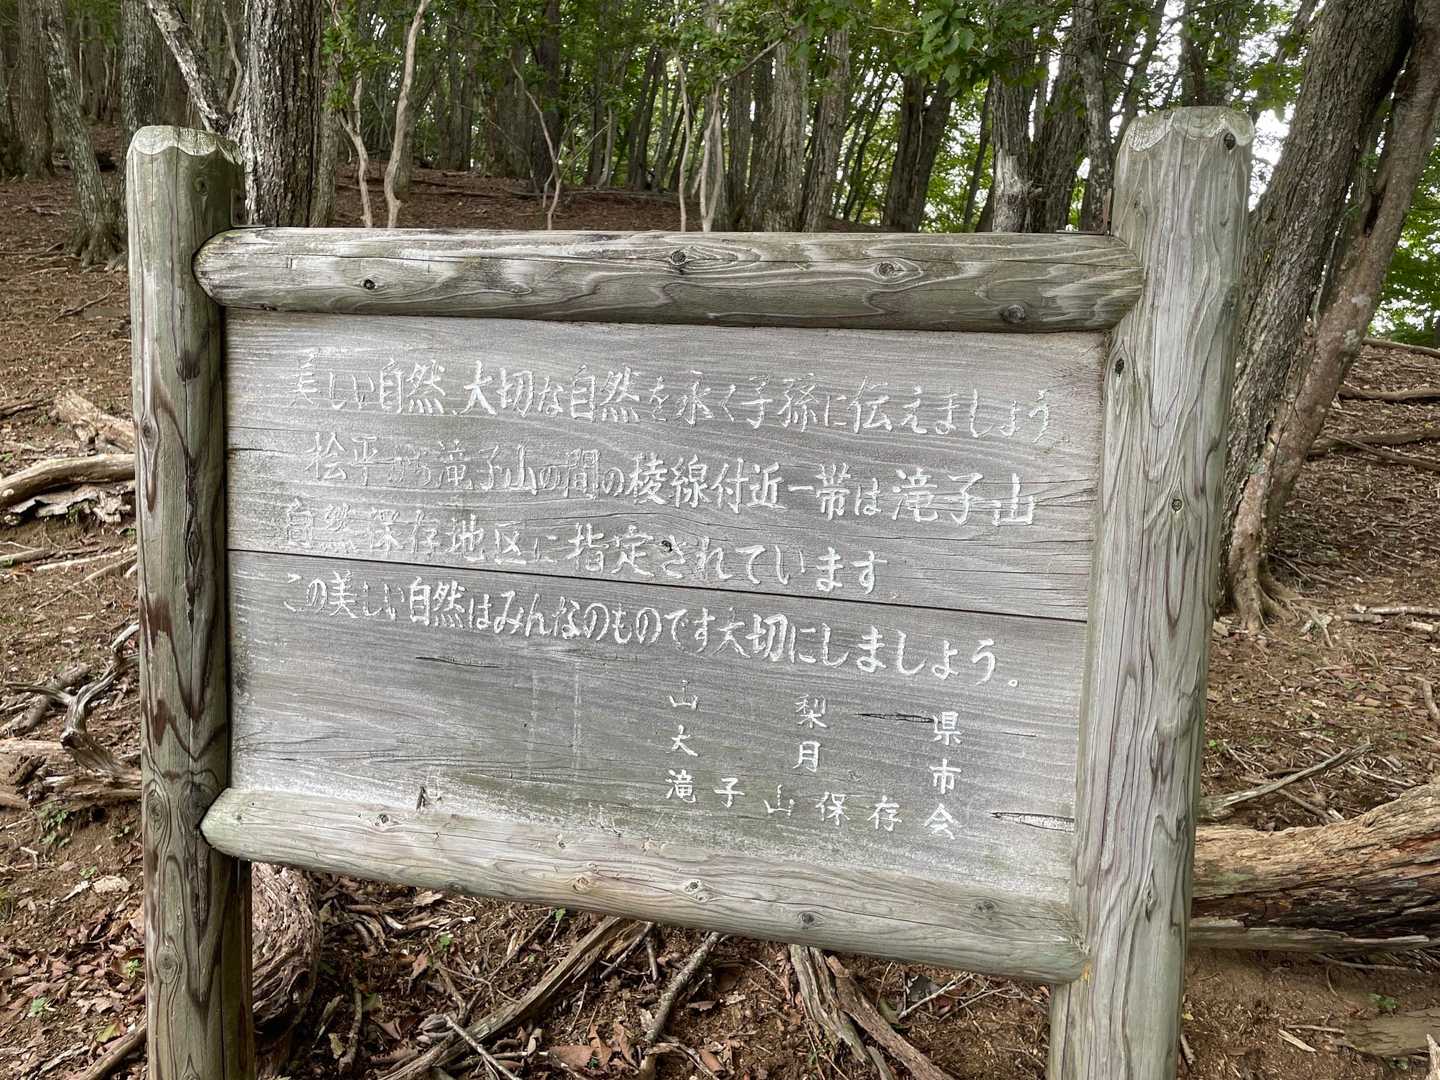 美しい自然、大切な自然を永く子孫に伝えましょう。
桧平から滝子山の間の稜線付近一帯は滝子山
自然保存地区に指定されています
この美しい自然はみんなのものです大切にしましょう。
山梨県
大月市
滝子山保存会